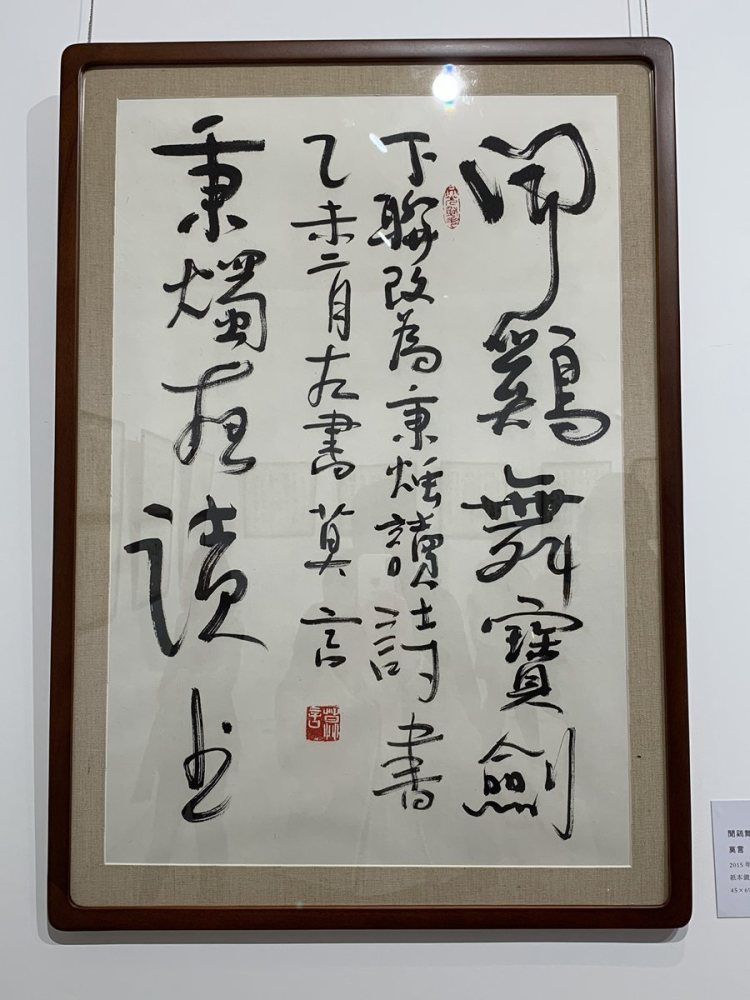 聞鷄舞寶劍
下聯改為秉燭讀詩書
乙未二月左書莫言
秉燭夜讀书
莫言
聞鷄舞
莫言
2015 年
紙本鏡
45×6